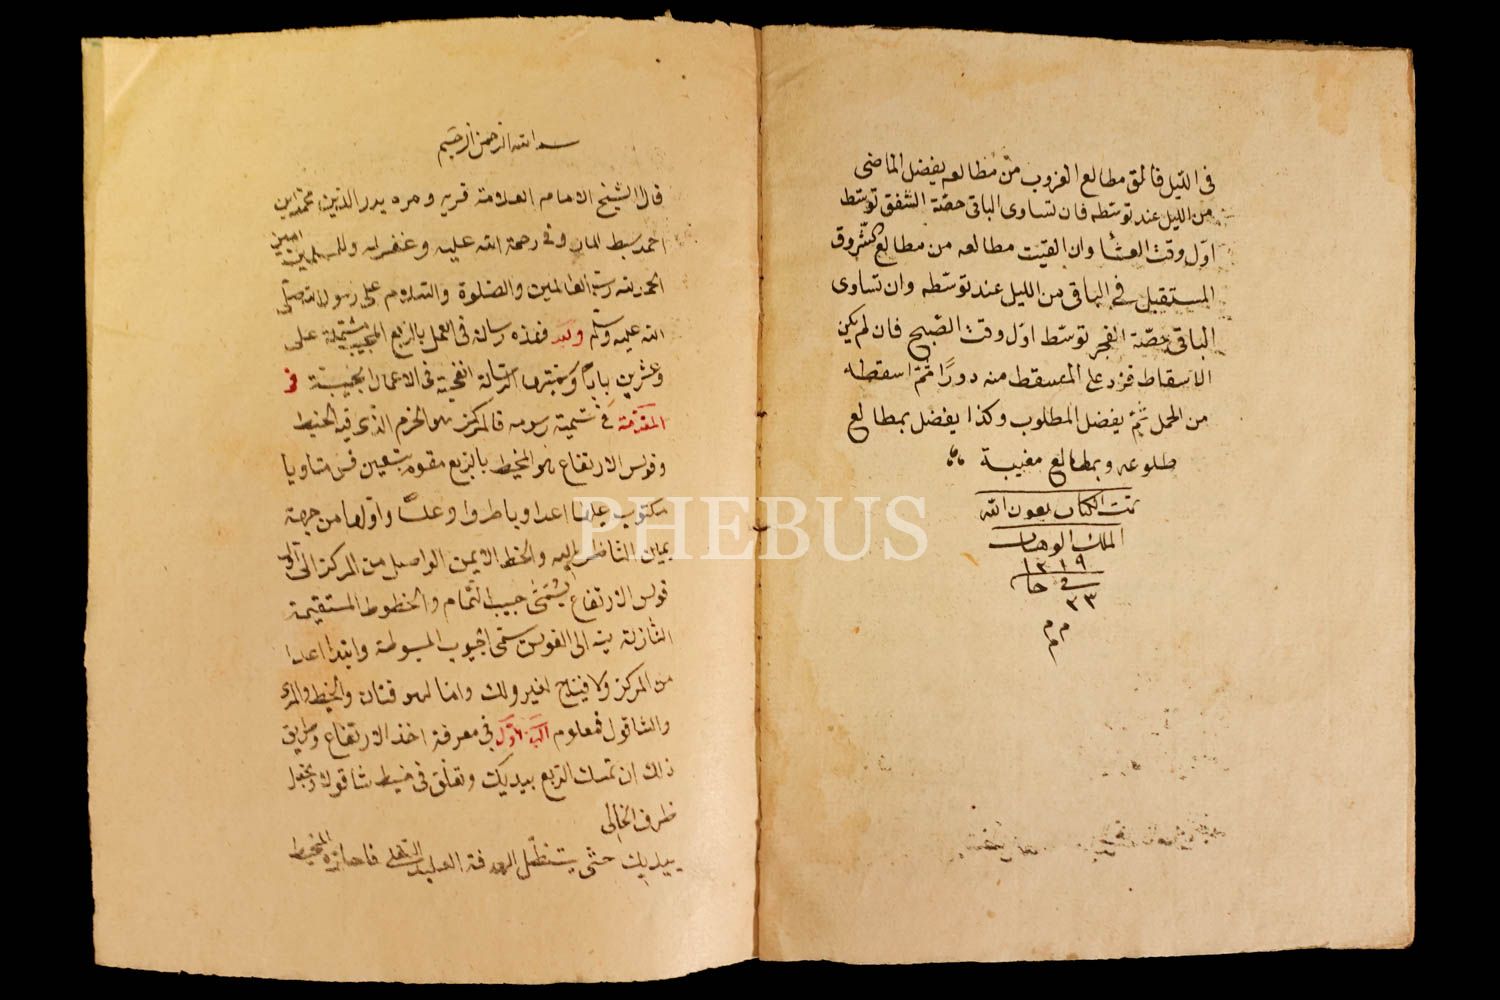 فى الليل فالق مطالع الغروب من مطالعه يفضل الماضى
من الليل عند توسطه فان تساوى الباقى حصة الشفق توسط
اول وقت العشا وان القيت مطالعه من مطالع الشروق
المستقبل فى الباقى من الليل عند توسطه وان تساوى
الباقى حصة الفجر توسط اول وقت الصبح فان لم يكن
الاسقاط فزد على المسقط منه دورًا ثم اسقطه
من الحمل ثم يفضل المطلوب وكذا يفضل بمطالع
طلوعه وبمطالع مغيبه
تمت الكتاب بعون الله
الملك الوهاب
١٢١٩
فى جا
٢٣
م م م
بسم الله الرحمن الرحيم
قال الشيخ الامام العلامة فريد ومره بدر الدين محمد ابن
احمد سبط المارونى رحمة الله عليه وغفر له وللمسلمين امين
الحمد لله رب العالمين والصلوة والسلام على رسول الله صلى
الله عليه وسلم وبعد فهذه رسالة فى العمل بالربع المجيب مشتملة على
وعشرين بابا وسميتها الرسالة الفتحية فى الاعمال الجيبية
المقدمة فى تسمية رسومه فالمركز هو الخرم الذى فيه الخيط
وقوس الارتفاع هو المحيط بالربع مقوم بتسعين قسما متساويا
مكتوب عليها اعداد باطردا وعكسا واولها من جهة
يمين الناظر اليه والخط الايمن الواصل من المركز الى اول
قوس الارتفاع يسمى جيب التمام والخطوط المستقيمة
النازلة الى القوس تسمى الجيوب المبسوطة وابتدا اعدا
من المركز ولا فيتاج لغير ولك واما لهدفتان والخيط والمرى
والشاقول فمعلوم الباب الاول فى معرفة اخذ الارتفاع وطريق
ذلك ان تمسك الربع بيديك وتعلق فى خيط شاقولا وتجعل
طرف الخالى
بيديك حتى يستظل الهدفة السفلى فما حازه الخيط
PHEBUS